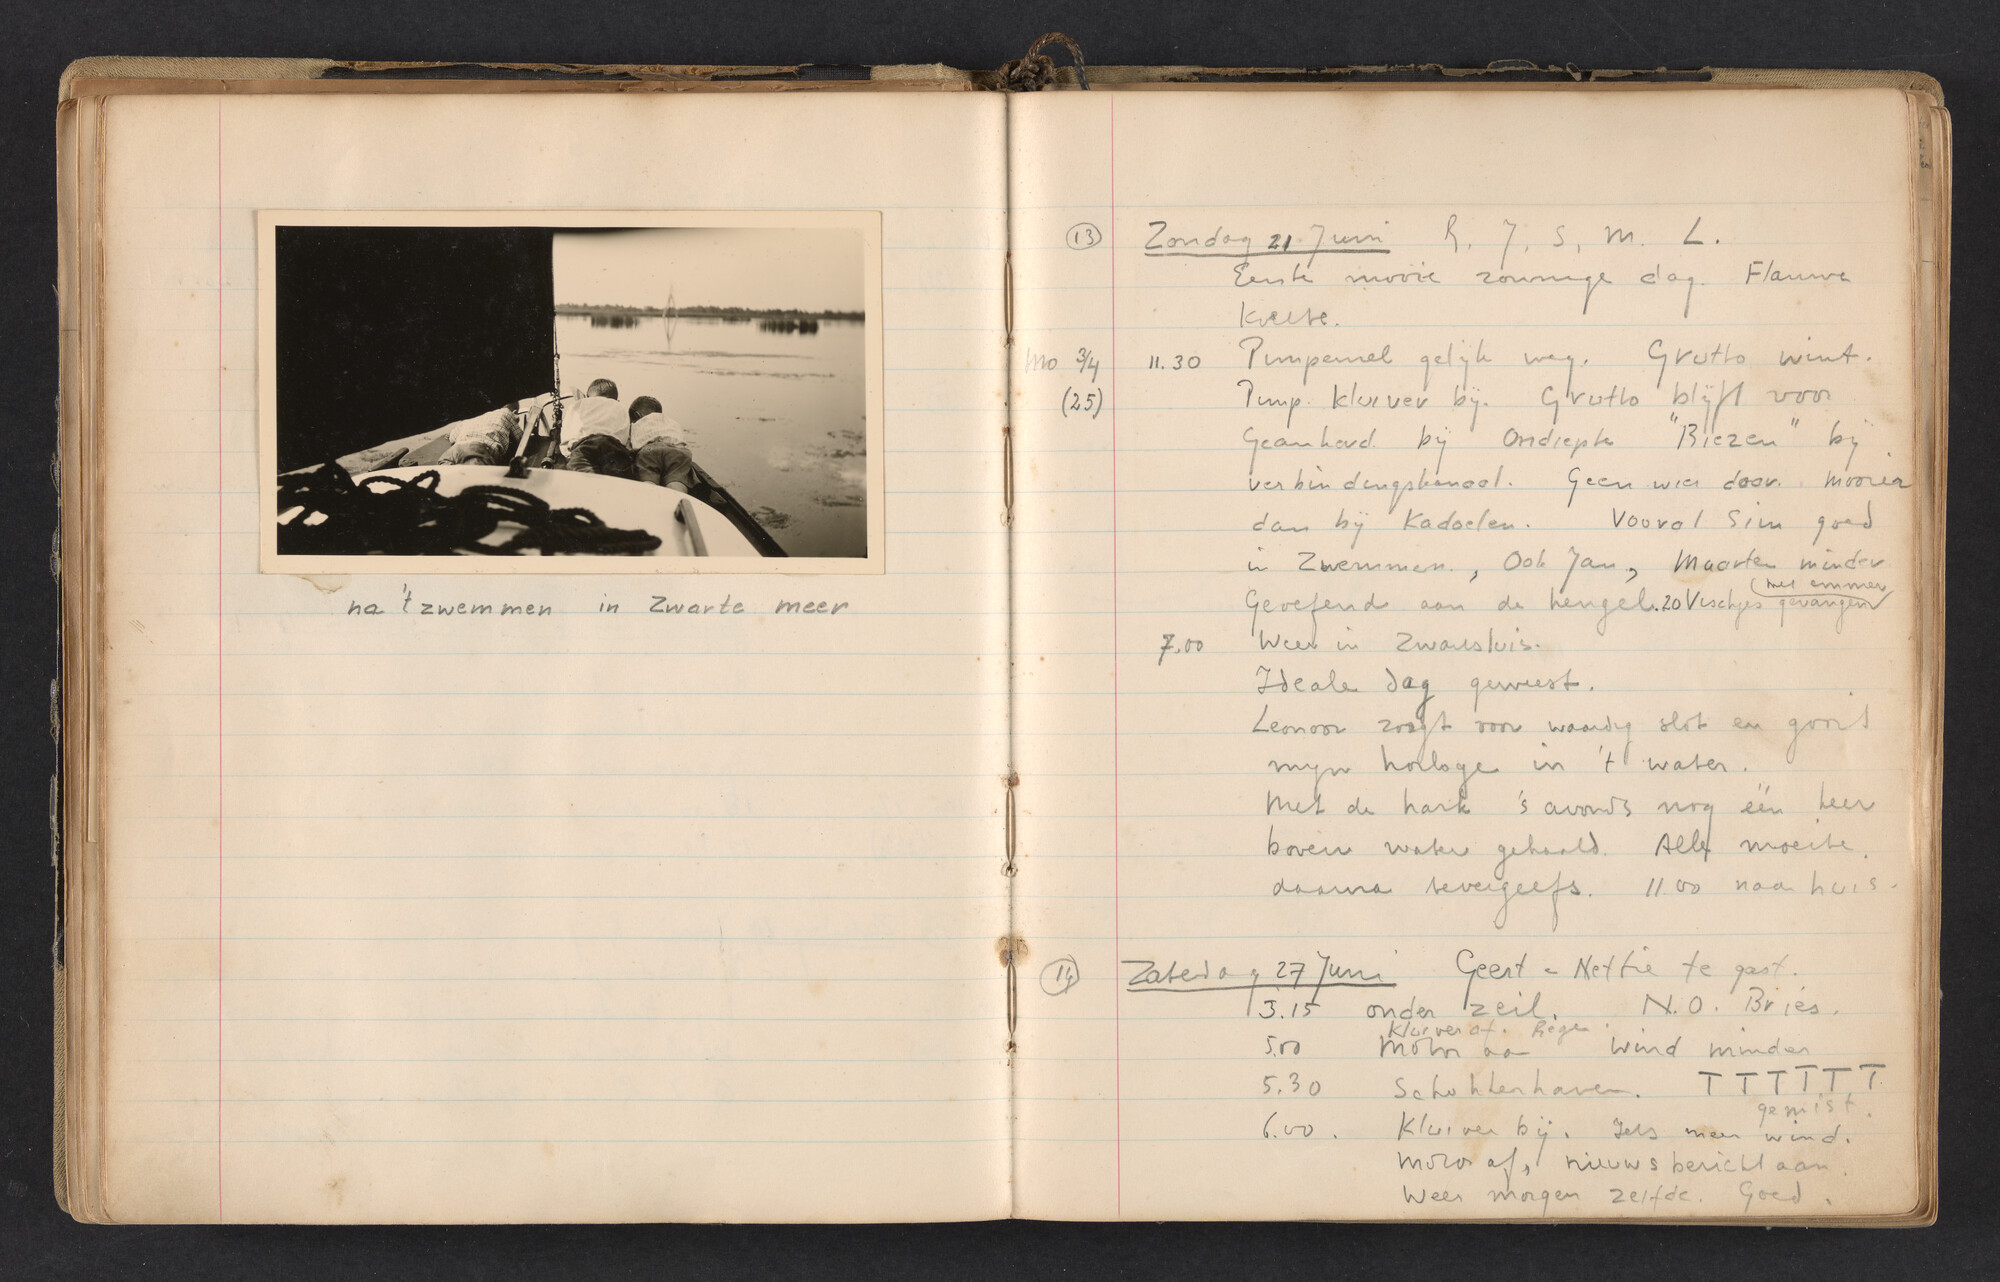 na 't zwemmen in Zwarte meer
13 Zondag 21 Juni R, J, S, M. L.
Eerste mooie zonnige dag. Flauwe
koelte.
Mo 3/4 11.30 Pimpernel gelijk weg. Grutto wint.
(25) Pimp. kluiver bij. Grutto blijft voor
Geankerd bij ondiepte "Biezen" bij
verbindingskanaal. Geen wier daar. Mooier
dan bij Kadoelen. Vooral Sim goed
in Zwemmen., Ook Jan, Maarten minder
met emmer
Geoefend aan de hengel. 20 Vischjes gevangen
7.00 Weer in Zwartsluis.
Ideale dag geweest.
Leonoor zorgt voor waardig slot en gooit
mijn horloge in 't water.
Met de hark 's avonds nog één keer
boven water gehaald. Alle moeite
daarna tevergeefs. 11.00 naar huis.
14 Zaterdag 27 Juni Geert - Nettie te gast.
3.15 onder zeil. N.O. Bries.
Kluiver af. Regen.
5.00 Motor aan Wind minder
5.30 Schokkerhaven. T T T T T T
gemist.
6.00. Kluiver bij. Iets meer wind.
Motor af, nieuwsbericht aan.
Weer morgen zelfde. Goed.